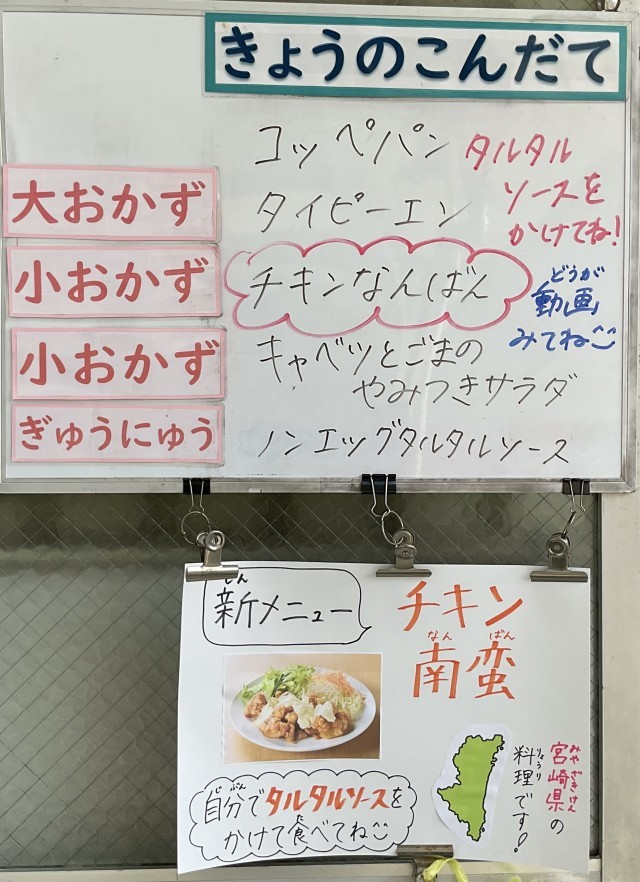 きょうのこんだて
コッペパン
タルタル
ソースを
かけてね!
大おかず
タイピーエン
小おかず
チキンなんばん
どうが
動画
みてね
小おかず
キャベツとごまの
やみつきサラダ
ぎゅうにゅう
ノンエッグタルタルソース
しん
新メニュー
チキン
なん ばん
南蛮
みやざきけん
宮崎県の
りょうり
料理です!
じぶん
自分でタルタルソースを
た
かけて食べてね